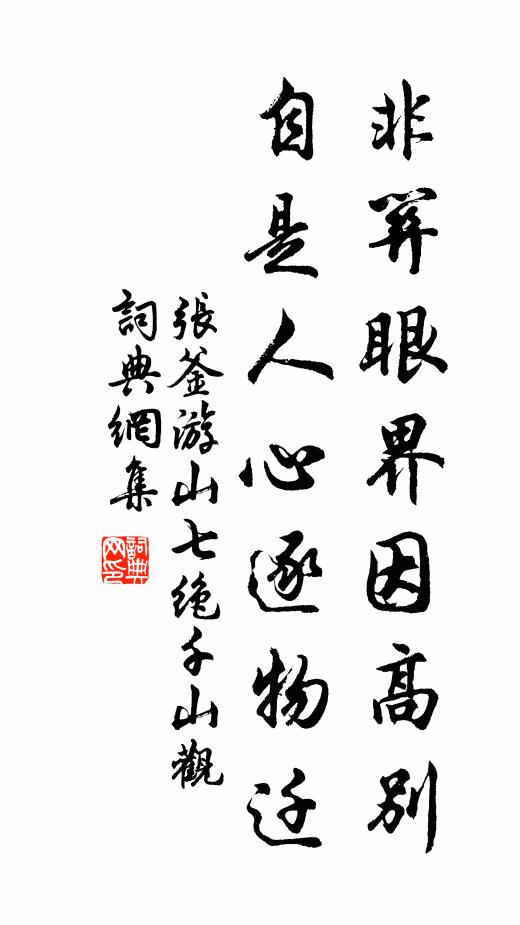 非關眼界因高別
自是人心逐物迁
張釜游山七绝千山觀
詞典網集
詞典
网印